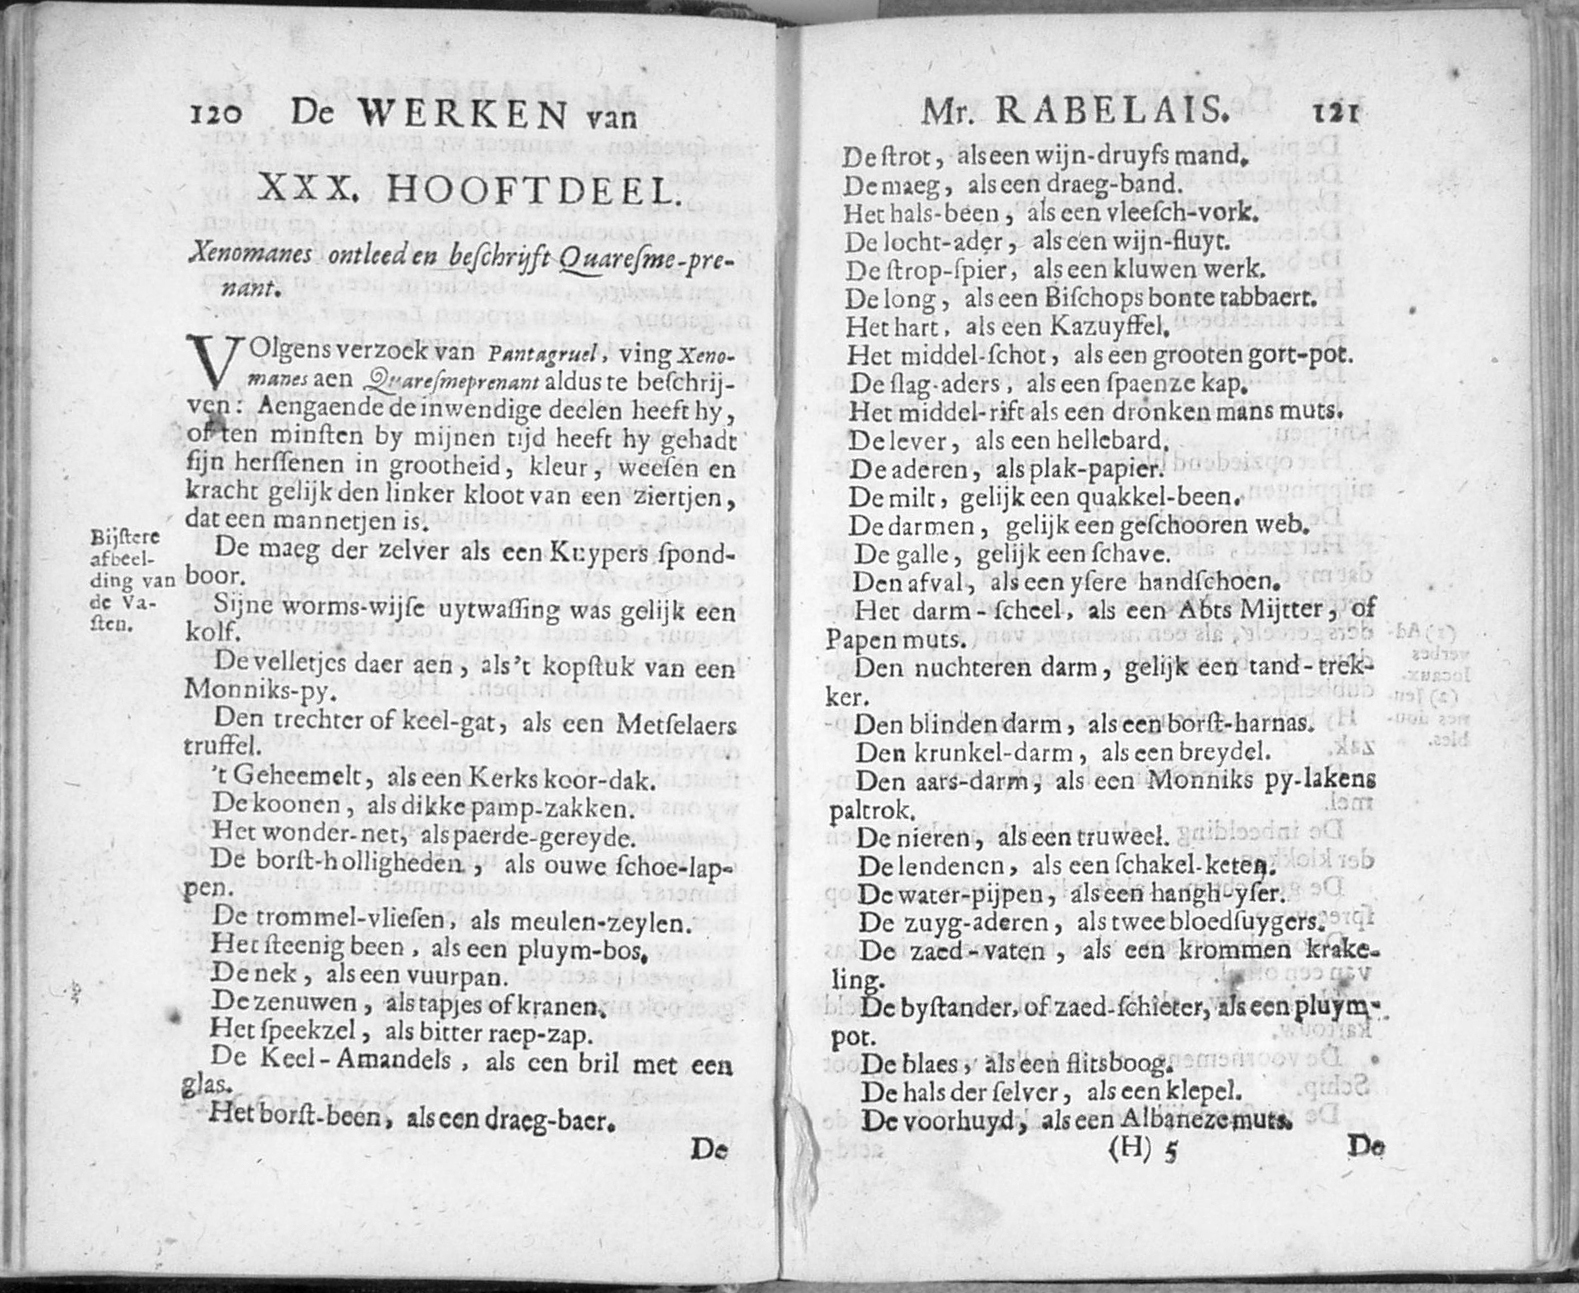 120 De WERKEN van
XXX. HOOFTDEEL.
Xenomanes ontleed en beſchrijft Quareſme-pre-
nant.
VOlgens verzoek van Pantagruel, ving Xeno-
manes aen Quareſmeprenant aldus te beſchrij-
ven: Aengaende de inwendige deelen heeft hy,
of ten minſten by mijnen tijd heeft hy gehadt
ſijn herſſenen in grootheid, kleur, weeſen en
kracht gelijk den linker kloot van een ziertjen,
dat een mannetjen is.
Bijſtere
afbeel-
ding van
de Va-
ſten.
De maeg der zelver als een Kuypers ſpond-
boor.
Sijne worms-wijſe uytwaſſing was gelijk een
kolf.
De velletjes daer aen, als 't kopſtuk van een
Monniks-py.
Den trechter of keel-gat, als een Metſelaers
truffel.
't Geheemelt, als een Kerks koor-dak.
De koonen, als dikke pamp-zakken.
Het wonder-net, als paerde-gereyde.
De borſt-holligheden, als ouwe ſchoe-lap-
pen.
De trommel-vlieſen, als meulen-zeylen.
Het ſteenig been, als een pluym-bos.
De nek, als een vuurpan.
De zenuwen, als tapjes of kranen.
Het ſpeekzel, als bitter raep-zap.
De Keel-Amandels, als een bril met een
glas.
Het borſt-been, als een draeg-baer.
De
Mr. RABELAIS. 121
De ſtrot, als een wijn-druyfs mand.
De maeg, als een draeg-band.
Het hals-been, als een vleeſch-vork.
De locht-ader, als een wijn-fluyt.
De ſtrop-ſpier, als een kluwen werk.
De long, als een Biſchops bonte tabbaert.
Het hart, als een Kazuyffel.
Het middel-ſchot, als een grooten gort-pot.
De ſlag-aders, als een ſpaenze kap.
Het middel-rift als een dronken mans muts.
De lever, als een hellebard.
De aderen, als plak-papier.
De milt, gelijk een quakkel-been.
De darmen, gelijk een geſchooren web.
De galle, gelijk een ſchave.
Den afval, als een yſere handſchoen.
Het darm-ſcheel, als een Abts Mijtter, of
Papen muts.
Den nuchteren darm, gelijk een tand-trek-
ker.
Den blinden darm, als een borſt-harnas.
Den krunkel-darm, als een breydel.
Den aars-darm, als een Monniks py-lakens
paltrok.
De nieren, als een truweel.
De lendenen, als een ſchakel-keten.
De water-pijpen, als een hangh-yſer.
De zuyg-aderen, als twee bloedſuygers.
De zaed-vaten, als een krommen krake-
ling.
De byſtander, of zaed-ſchieter, als een pluym-
pot.
De blaes, als een flitsboog.
De hals der ſelver, als een klepel.
De voorhuyd, als een Albaneze muts.
(H) 5 De